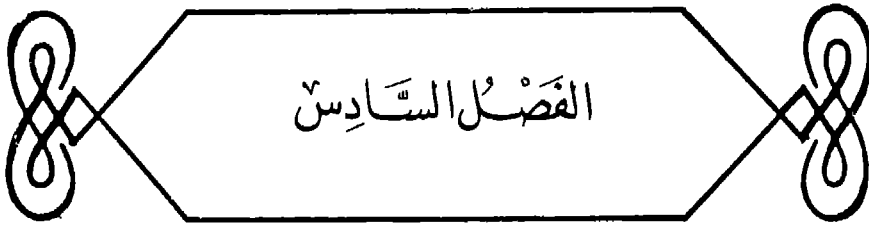 الفَصْلُ السَّادِسُ